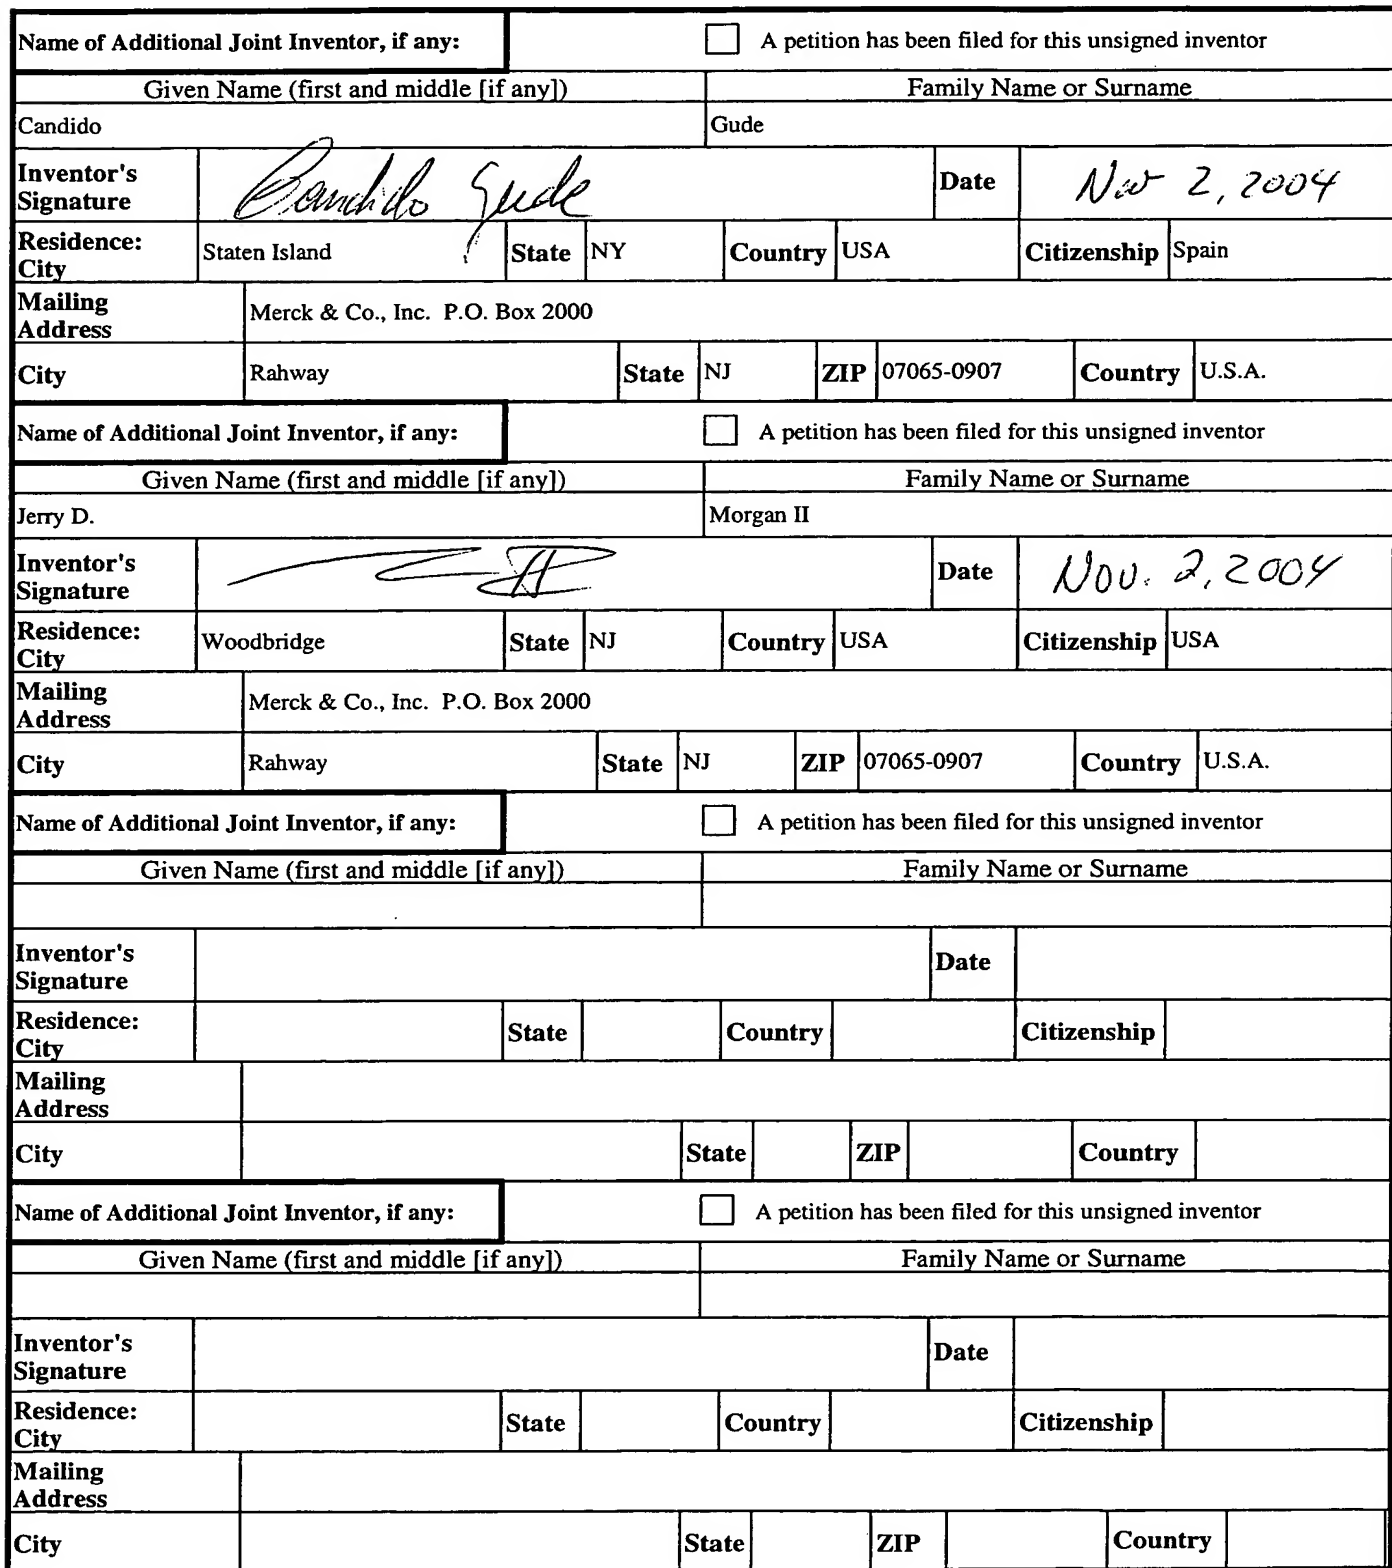 Name of Additional Joint Inventor, if any: A petition has been filed for this unsigned inventor
Given Name (first and middle [if any]) Family Name or Surname
Candido Gude
Inventor's Signature Candido Gude Date Nov 2, 2004
Residence: City Staten Island State NY Country USA Citizenship Spain
Mailing Address Merck & Co., Inc. P.O. Box 2000
City Rahway State NJ ZIP 07065-0907 Country U.S.A.
Name of Additional Joint Inventor, if any: A petition has been filed for this unsigned inventor
Given Name (first and middle [if any]) Family Name or Surname
Jerry D. Morgan II
Inventor's Signature Date Nov. 2, 2004
Residence: City Woodbridge State NJ Country USA Citizenship USA
Mailing Address Merck & Co., Inc. P.O. Box 2000
City Rahway State NJ ZIP 07065-0907 Country U.S.A.
Name of Additional Joint Inventor, if any: A petition has been filed for this unsigned inventor
Given Name (first and middle [if any]) Family Name or Surname
Inventor's Signature Date
Residence: City State Country Citizenship
Mailing Address
City State ZIP Country
Name of Additional Joint Inventor, if any: A petition has been filed for this unsigned inventor
Given Name (first and middle [if any]) Family Name or Surname
Inventor's Signature Date
Residence: City State Country Citizenship
Mailing Address
City State ZIP Country